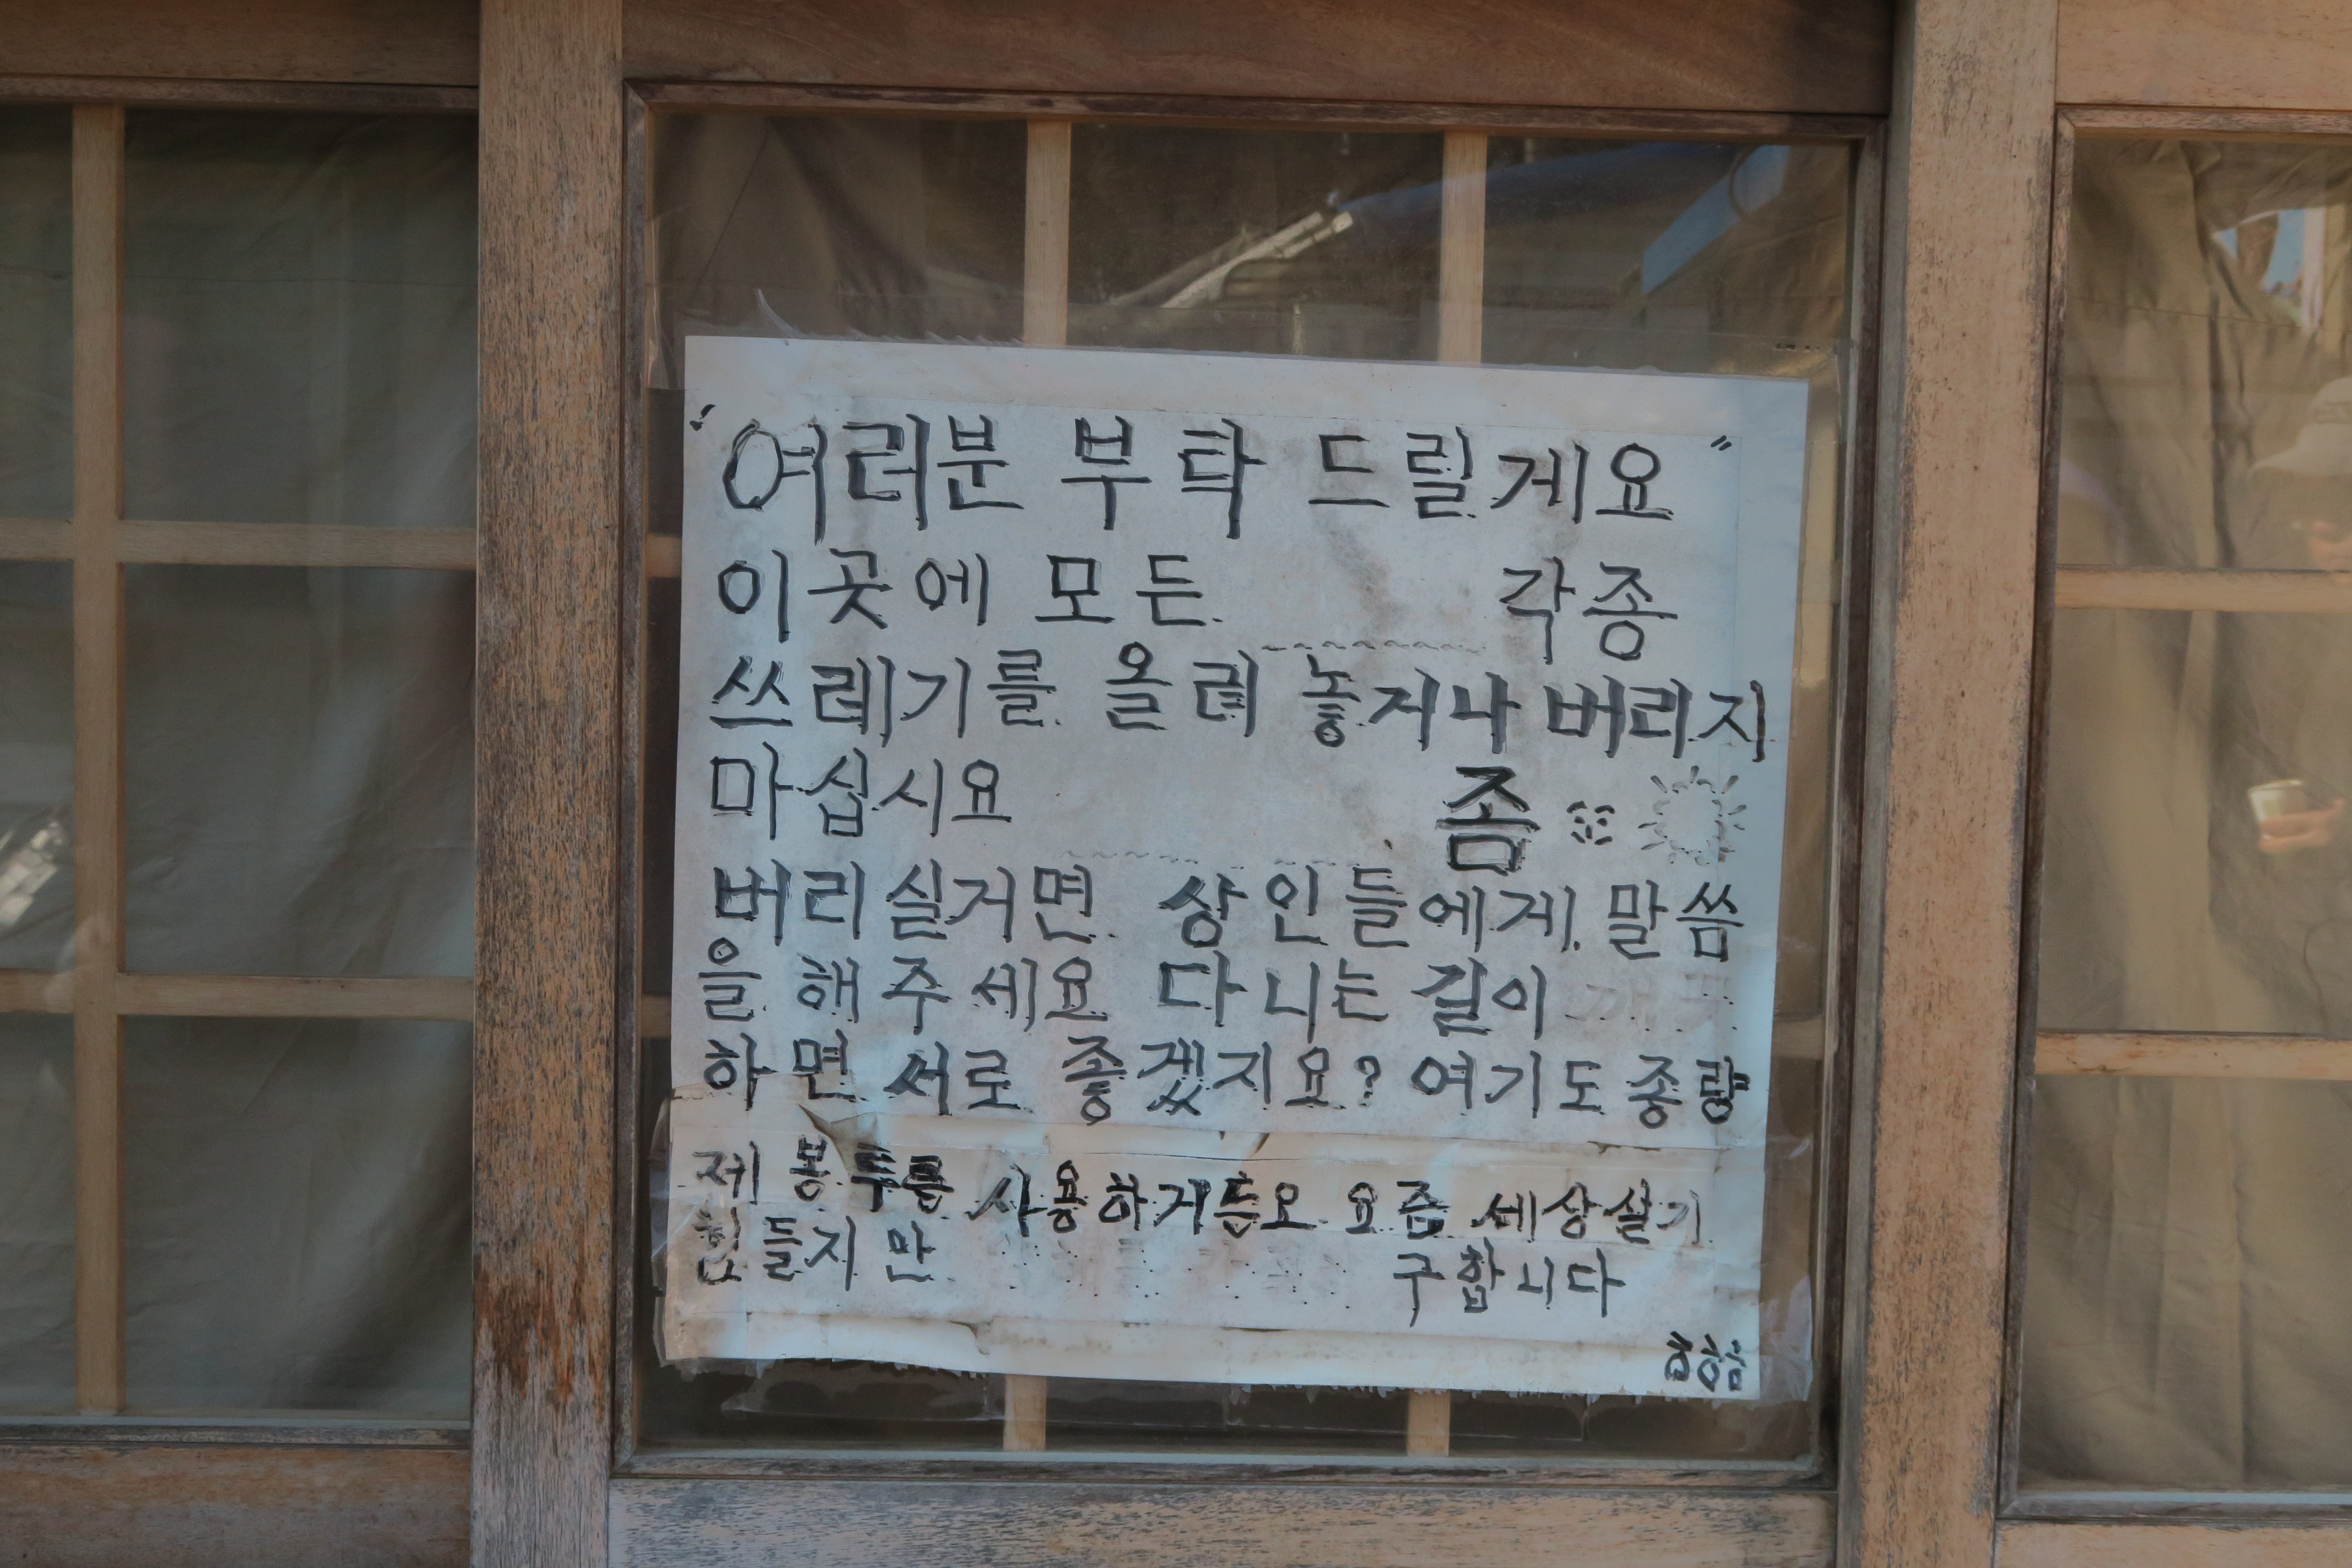 "여러분 부탁 드릴게요"
이곳에 모든 각종
쓰레기를 올려 놓지나 버리지
마십시요 좀
버리실거면 상인들에게 말씀
을 해주세요 다니는 길이
하면 서로 좋겠지요? 여기도 종량
제 봉투를 사용하거든요 요즘 세상살기
힘들지만 구합니다